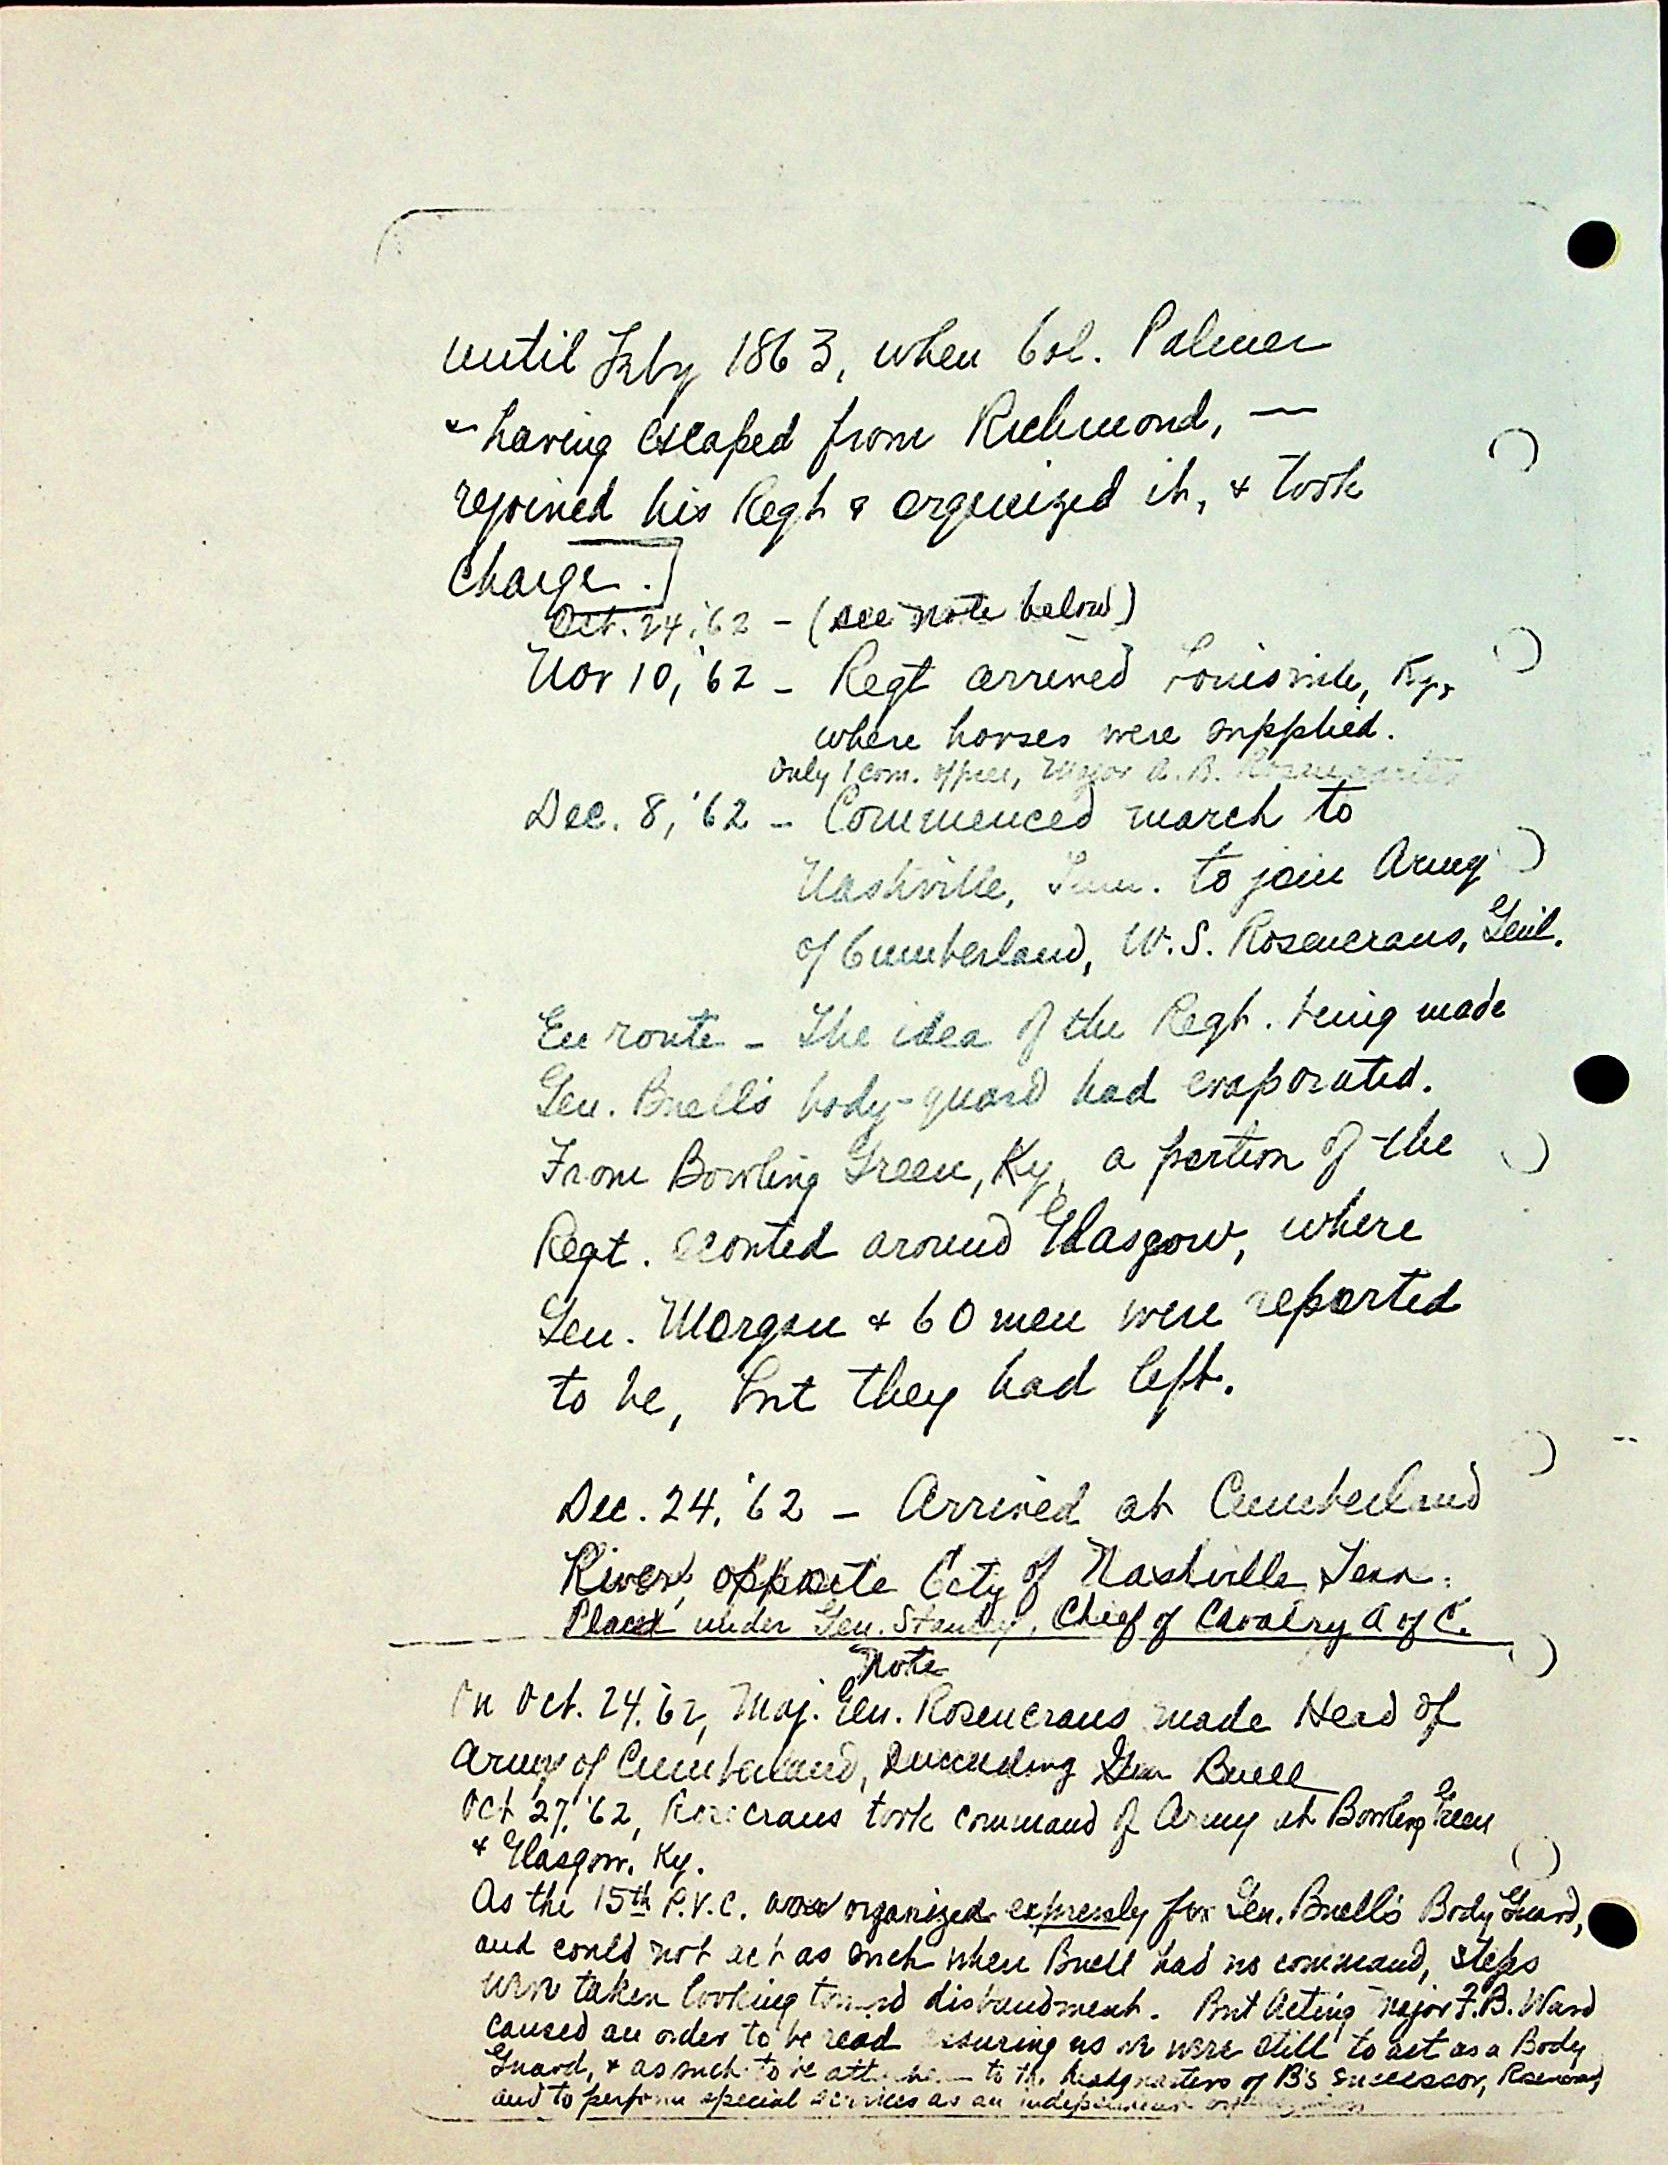 until Feby 1863, when Col. Palmer
- having escaped from Richmond, —
rejoined his Regt & organized it, & took
charge.]
Oct. 24, '62 - (see note below)
Nov 10, '62 - Regt arrived Louisville, Ky.,
where horses were supplied.
Only 1 com. officer, Major A. B.
Dec. 8, '62 - Commenced march to
Nashville, Tenn. to join Army
of Cumberland, W. S. Rosencrans, Genl.
En route - The idea of the Regt. being made
Gen. Buell's body-guard had evaporated.
From Bowling Green, Ky, a portion of the
Regt. scouted around Glasgow, where
Gen. Morgan & 60 men were reported
to be, but they had left.
Dec. 24, '62 - Arrived at Cumberland
River, opposite City of Nashville, Tenn.
Placed under Gen. Stanley, Chief of Cavalry A of C.
Note
On Oct. 24, '62, Maj. Gen. Rosencrans made Head of
Army of Cumberland, succeeding Gen Buell
Oct 27, '62, Rosecrans took command of Army at Bowling Green
& Glasgow, Ky.
As the 15th P.V.C. was organized expressly for Gen. Buell's Body Guard,
and could not act as such when Buell had no command, steps
were taken looking toward disbandment. But Acting Major F.B. Ward
caused an order to be read assuring us we were still to act as a Body
Guard, & as such to be attached to the headquarters of B's successor,
and to perform special services as an independent organization